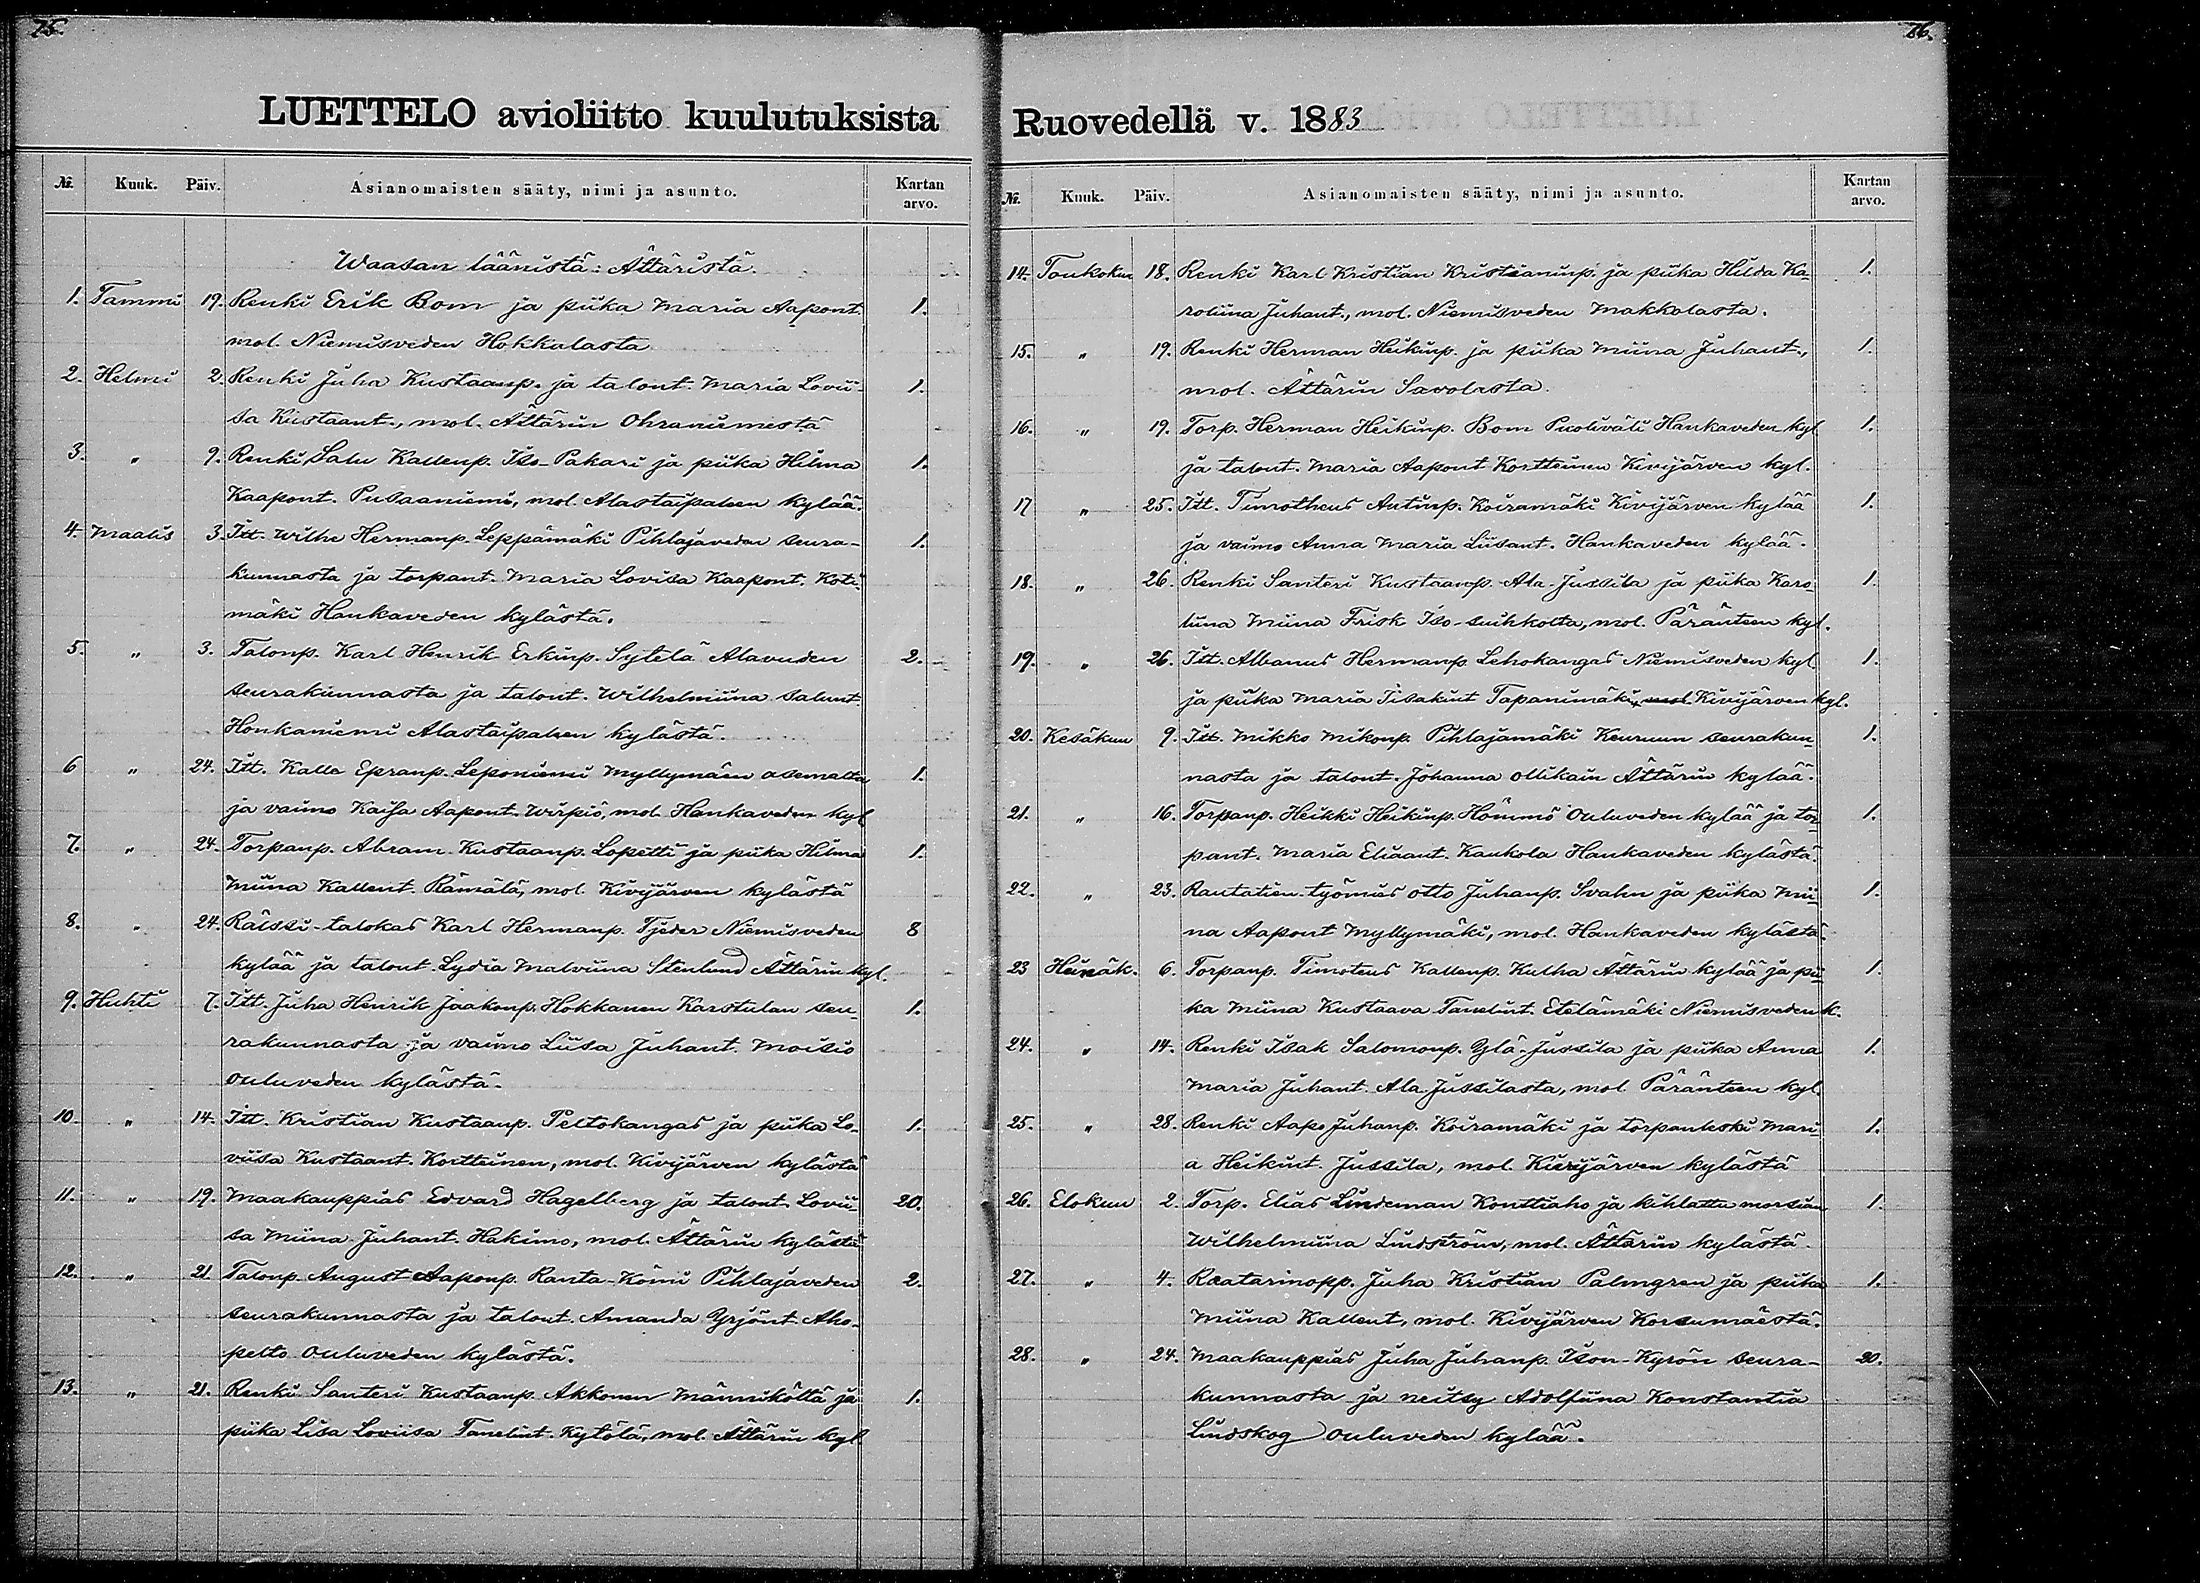 75.
LUETTELO avioliitto kuulutuksista
№. Kuuk. Päiv. Asianomaisten sääty, nimi ja asunto. Kartan arvo.
Waasan läänistä: Ättäristä.
1. Tammi 19. Renki Erik Bom ja piika Maria Aapont. 1.
mol. Niemisveden Hokkalasta
2. Helmi 2. Renki Juha Kustaanp. ja talont. Maria Lovii- 1.
sa Kustaant., mol. Ättärin Ohraniemestä
3. " 9. Renki Salu Kallenp. Iso-Pakari ja piika Hilma 1.
Kaapont. Pusaaniemi, mol. Alastaipaleen kylää.
4. Maalis 3. Itt. Wilhe Hermanp. Leppämäki Pihlajaveden seura- 1.
kunnasta ja torpant. Maria Lovisa Kaapont. Koti-
mäki Hankaveden kylästä.
5. " 3. Talonp. Karl Henrik Erkinp. Sytelä Alavuden 2.
seurakunnasta ja talont. Wilhelmiina Salunt.
Honkaniemi Alastaipaleen kylästä.
6 " 24. Itt. Kalle Epranp. Leponiemi Myllymäen asemalta 1.
ja vaimo Kaisa Aapont. Wirpiö, mol. Hankaveden kyl
7. " 24. Torpanp. Abram Kustaanp. Lopetti ja piika Hilma 1.
Miina Kallent. Rämälä, mol. Kivijärven kylästä
8. " 24. Räissi-talokas Karl Hermanp. Tjeder Niemisveden 8
kylää ja talont. Lydia Malviina Stenlund Ättärin kyl.
9. Huhti 7. Itt. Juha Henrik Jaakonp. Hokkanen Karstulan seu- 1.
rakunnasta ja vaimo Liisa Juhant. Moisio
Ouluveden kylästä.
10. " 14. Itt. Kristian Kustaanp. Peltokangas ja piika Lo- 1.
viisa Kustaant. Kortteinen, mol. Kivijärven kylästä
11. " 19. Maakauppias Edvard Hagelberg ja talont. Lovii- 20.
sa Miina Juhant. Hakimo, mol. Ättärin kylästä
12. " 21 Talonp. August Aaponp. Ranta-Kömi Pihlajaveden 2.
seurakunnasta ja talont. Amanda Yrjönt. Aho-
pelto Ouluveden kylästä.
13. " 21. Renki Santeri Kustaanp. Akkonen Männiköltä ja 1.
piika Lisa Loviisa Tanelint. Kytölä, mol. Ättärin kyl
76.
Ruovedellä v. 1883
№. Kuuk. Päiv. Asianomaisten sääty, nimi ja asunto. Kartan arvo.
14. Toukokuu 18. Renki Karl Kristian Kristianinp. ja piika Hilda Ka- 1.
roliina Juhant., mol. Niemisveden Makkolasta.
15. " 19. Renki Herman Heikinp. ja piika Miina Juhant., 1.
mol. Ättärin Savolasta.
16. " 19. Torp. Herman Heikinp. Bom Puoliväli Hankaveden kyl 1.
ja talont. Maria Aapont Kortteinen Kivijärven kyl.
17 " 25. Itt. Timotheus Antinp. Koiramäki Kivijärven kylää 1.
ja vaimo Anna Maria Liisant. Hankaveden kylää.
18. " 26. Renki Santeri Kustaanp. Ala-Jussila ja piika Karo- 1.
liina Miina Frisk Iso-suihkolta, mol. Päränteen kyl.
19. " 26. Itt. Albanus Hermanp. Lehokangas Niemisveden kyl 1.
ja piika Maria Iisakint Tapanimäki, mol. Kivijärven kyl.
20. Kesäkuu 9. Itt. Mikko Mikonp. Pihlajamäki Keuruun seurakun- 1.
nasta ja talont. Johanna Ollikain Ättärin kylää.
21. " 16. Torpanp. Heikki Heikinp. Hömmö Ouluveden kylää ja tor- 1.
pant. Maria Eliaant. Kaukola Hankaveden kylästä.
22. " 23. Rautatien-työmies Otto Juhanp. Svahn ja piika Mii- 1.
na Aapont Myllymäki, mol. Hankaveden kylästä.
23 Heinäk. 6. Torpanp. Timoteus Kallenp. Kulha Ättärin kylää ja pii- 1.
ka Miina Kustaava Tanelint. Etelämäki Niemisveden k.
24. " 14. Renki Isak Salomonp. Ylä-Jussila ja piika Anna 1.
Maria Juhant. Ala-Jussilasta, mol. Päränteen kyl.
25. " 28. Renki Aapo Juhanp. Koiramäki ja torpanleski Mari- 1.
a Heikint. Jussila, mol. Kivijärven kylästä
26. Elokuu 2. Torp. Elias Lindeman Konttiaho ja kihlattu morsian 1.
Wilhelmiina Lindström, mol. Ättärin kylästä.
27. " 4. Raatarinopp. Juha Kristian Palmgren ja piika 1.
Miina Kallent, mol. Kivijärven Korsumäestä.
28. " 24. Maakauppias Juha Juhanp. Ison-Kyrön seura- 20.
kunnasta ja neitsy Adolfiina Konstantia
Lindskog Ouluveden kylää.